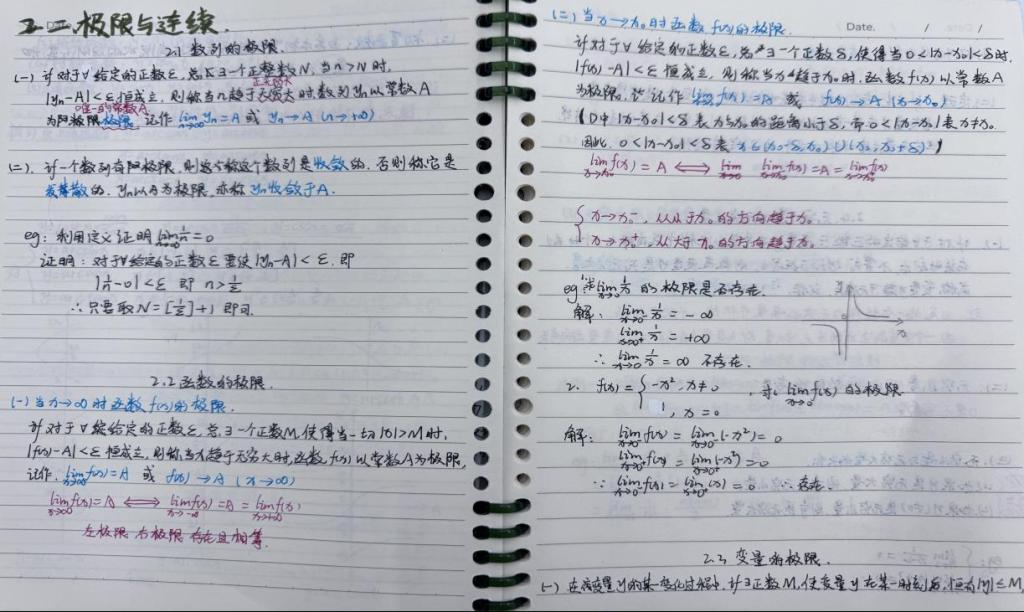 二.极限与连续.
2.1 数列的极限.
(一) 若对于∀给定的正数ε,总∃一个正整数N,当n>N时,
|yn-A|<ε恒成立,则称当n趋于无穷大时数列yn以常数A
为极限 记作 lim n→∞ yn=A 或 yn→A (n→+∞)
(二). 若一个数列有极限,则称这个数列是收敛的.否则称它是
发散的. yn以A为极限,亦称yn收敛于A.
eg: 利用定义证明 lim n→∞ 1/n=0
证明: 对于∀给定的正数ε 要使|yn-A|<ε.即
|1/n-0|<ε 即 n>1/ε
∴只要取N=[1/ε]+1 即可.
2.2 函数的极限.
(一) 当x→∞时函数f(x)的极限.
若对于∀给定的正数ε,总∃一个正数M,使得当一切|x|>M时,
|f(x)-A|<ε恒成立,则称当x趋于无穷大时,函数f(x)以常数A为极限,
记作: lim x→∞ f(x)=A 或 f(x)→A (x→∞)
lim x→∞ f(x)=A ⟺ lim x→-∞ f(x)=A= lim x→+∞ f(x)
左极限 右极限 存在且相等.
Date. / /
(二) 当x→x₀时函数f(x)的极限.
若对于∀给定的正数ε,总∃一个正数δ,使得当0<|x-x₀|<δ时
|f(x)-A|<ε恒成立,则称当x趋于x₀时,函数f(x)以常数A
为极限, 记作 lim x→x₀ f(x)=A 或 f(x)→A (x→x₀)
(其中|x-x₀|<δ表x与x₀的距离小于δ,而0<|x-x₀|表x≠x₀
因此 0<|x-x₀|<δ表 x∈(x₀-δ,x₀)∪(x₀,x₀+δ))
lim x→x₀ f(x)=A ⟺ lim lim f(x)=A= lim f(x)
{ x→x₀⁻, 从小于x₀的方向趋于x₀
x→x₀⁺ 从大于x₀的方向趋于x₀.
eg: 1. lim x→0 1/x 的极限是否存在.
解: lim x→0⁻ 1/x=-∞
lim x→0⁺ 1/x=+∞
∴ lim x→0 1/x=∞ 不存在.
2. f(x)={ -x², x≠0 , 求 lim x→0 f(x) 的极限
1, x=0
解: lim x→0⁻ f(x)= lim x→0⁻ (-x²)=0
lim x→0⁺ f(x)= lim x→0⁺ (-x²)=0
∵ lim x→0⁻ f(x)= lim x→0⁺ f(x)=0 ∴存在.
2.3 变量的极限.
(一) 在变量y的某一变化过程中,若∃正数M,使变量y在某一时刻后,恒有|y|≤M